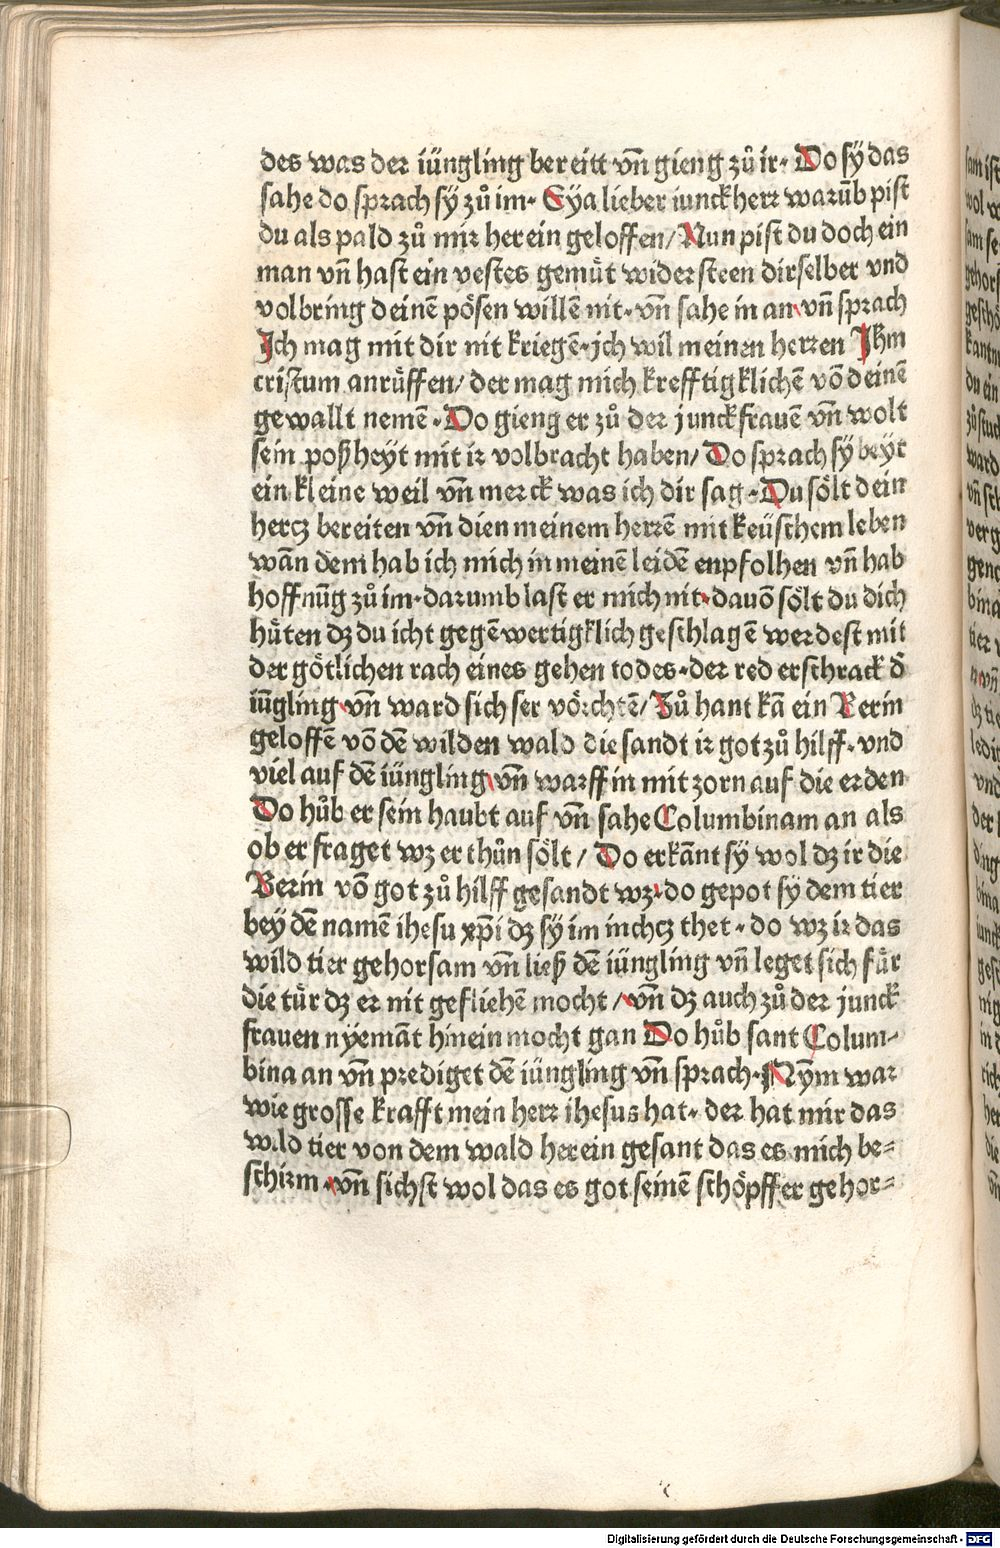 des was der iüngling bereitt vn̄ gieng zů ir· Do sy das
sahe do sprach sy zů im· Eya lieber iunckherr warūb pist
du als pald zů mir herein geloffen/ Nun pist du doch ein
man vn̄ hast ein vestes gemüt widersteen dir selber vnd
volbring deinē pösen willē nit· vn̄ sahe in an vn̄ sprach
Ich mag mit dir nit kriegē· ich wil meinen herren Ihm
cristum anrüffen/ der mag mich krefftigklichē võ deinē
gewallt nemē· Do gieng er zů der junckfrauē vn̄ wolt
sein poßheyt mit ir volbracht haben/ Do sprach sy beyt
ein kleine weil vn̄ merck was ich dir sag· Du sölt dein
hercz bereiten vn̄ dien meinem herrē mit keüschem leben
wān dem hab ich mich in meinē leidē enpfolhen vn̄ hab
hoffnūg zů im· darumb last er mich nit· dauō sölt du dich
hüten dz du icht gegēwertigklich geschlagē werdest mit
der götlichen rach eines gehen todes· der red erschrack d̄
iūgling vn̄ ward sich ser vörchtē/ Zů hant kā ein Berin
geloffē võ dē wilden wald die sandt ir got zů hilff· vnd
viel auf dē iüngling vn̄ warff in mit zorn auf die erden
Do hůb er sein haubt auf vn̄ sahe Columbinam an als
ob er fraget wz er thůn sölt/ Do erkānt sy wol dz ir die
Berin võ got zů hilff gesandt wz· do gepot sy dem tier
bey dē namē ihesu xp̄i dz sy im nichcz thet· do wz ir das
wild tier gehorsam vn̄ ließ dē iüngling vn̄ leget sich für
die tür dz er nit gefliehē mocht/ vn̄ dz auch zů der junck
frauen nyemāt hinein mocht gan Do hůb sant Colum-
bina an vn̄ prediget dē iüngling vn̄ sprach· Nȳm war
wie grosse krafft mein herr ihesus hat· der hat mir das
wild tier von dem wald herein gesant das es mich be=
schirm· vn̄ sichst wol das es got seinē schöpffer gehor=
Digitalisierung gefördert durch die Deutsche Forschungsgemeinschaft - DFG